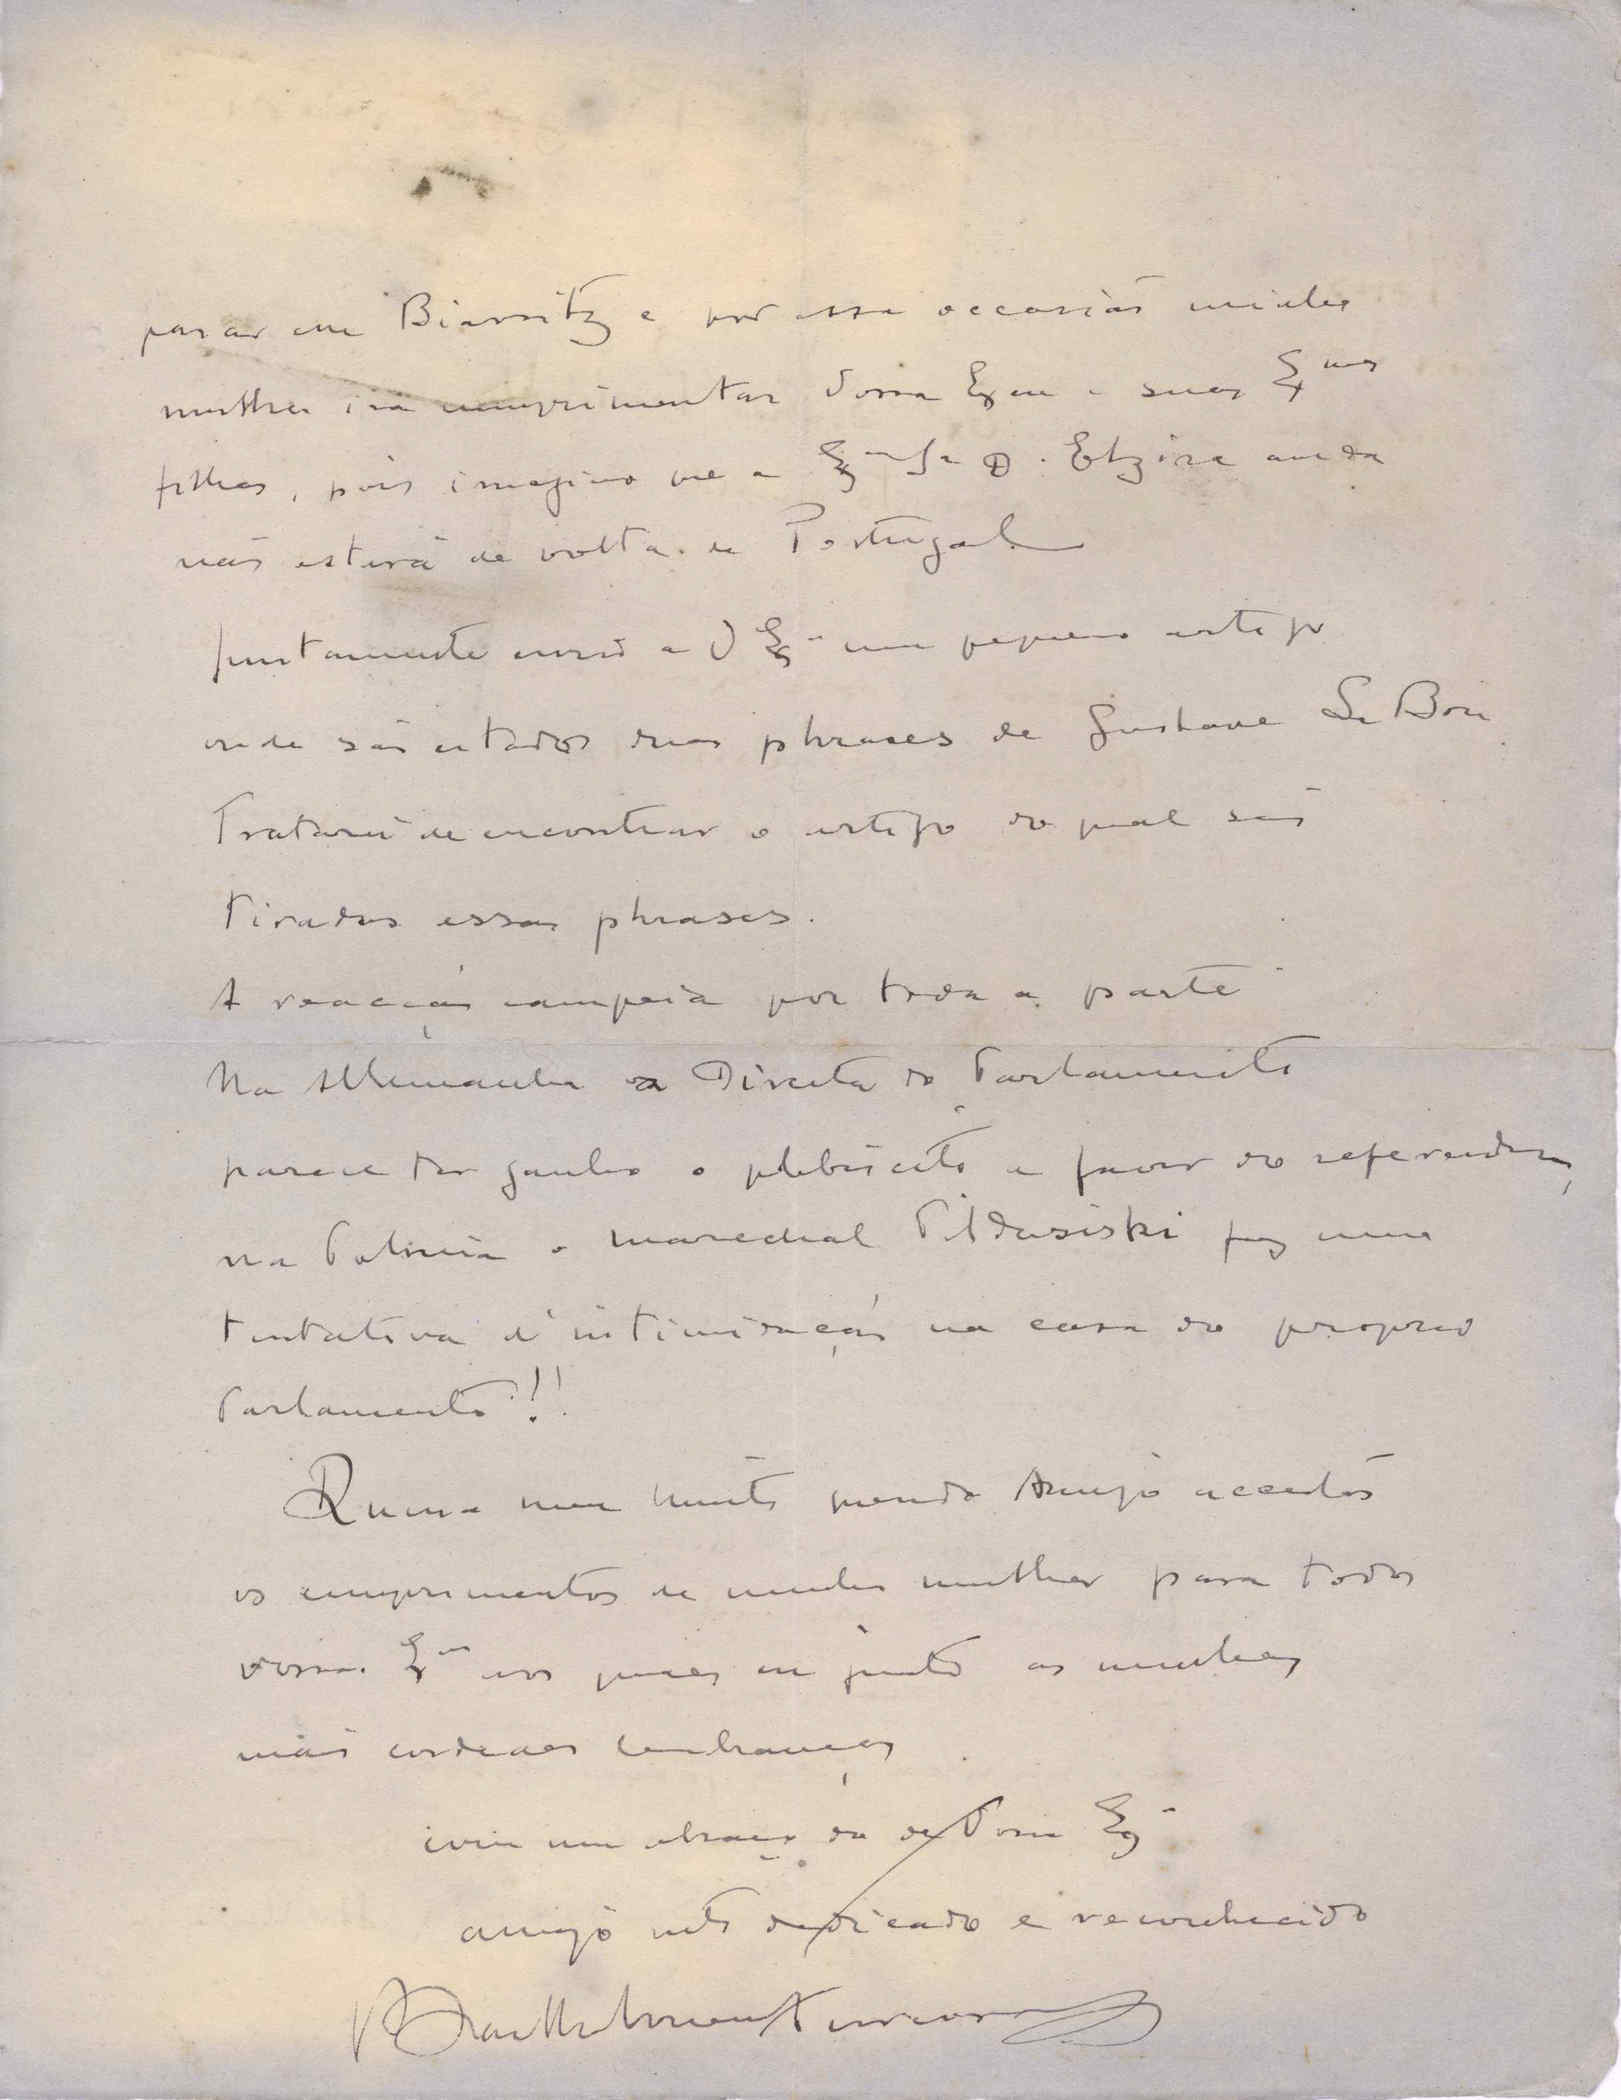 parar em Biarritz e por essa occasião minha
mulher irá cumprimentar Vossa Exa e suas Exmas
filhas, pois imagino que a Exma Sra D. Elzira ainda
não estará de volta de Portugal.
Juntamente envio a V Exa um pequeno artigo
onde são citados duas phrases de Gustave Le Bon
Tratarei de encontrar o artigo do qual são
tiradas essas phrases.
A reacção campeia por toda a parte
Na Allemanha a Direita do Parlamento
parece ter ganho o plebiscito a favor do referendum,
na Polonia o marechal Pildusiski fez uma
tentativa d'intimidação na casa do proprio
Parlamento!!
Queira meu muito querido Amigo acceitar
os cumprimentos de minha mulher para todos
Vossas Exas aos quaes eu junto as minhas
mais cordeaes lembranças
com um abraço do de Vossa Exa
amigo mto dedicado e reconhecido